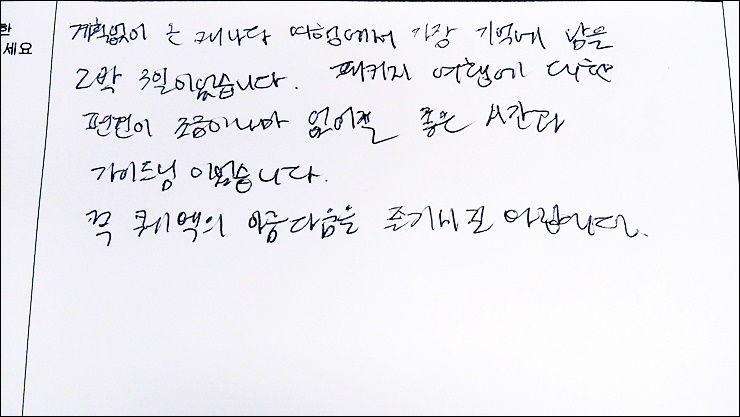 한
세요
계획없이 온 캐나다 여행에서 가장 기억에 남을
2박 3일이었습니다. 패키지 여행에 대한
편견이 조금이나마 없어질 좋은 시간과
가이드님 이었습니다.
꼭 퀘벡의 아름다움을 즐기시길 바랍니다.